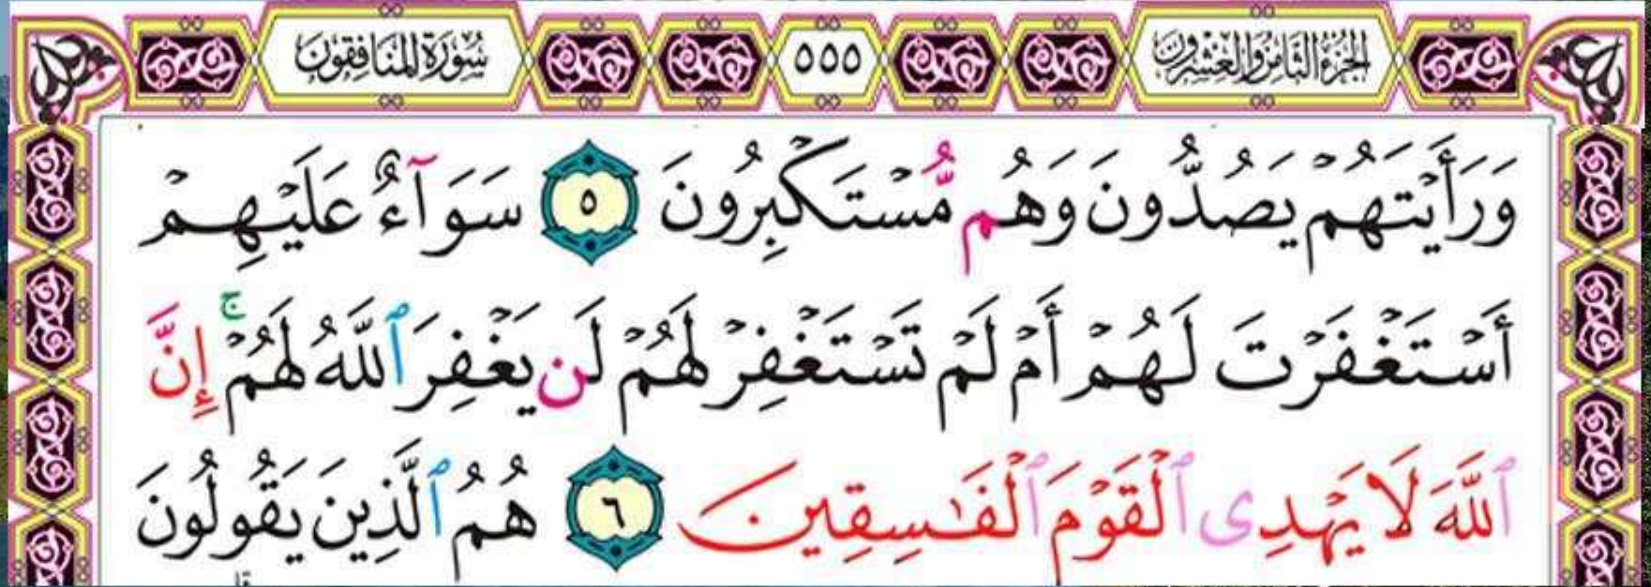 الجزء الثامن والعشرون ٥٥٥ سورة المنافقون
وَرَأَيْتَهُمْ يَصُدُّونَ وَهُم مُّسْتَكْبِرُونَ ٥ سَوَآءٌ عَلَيْهِمْ
أَسْتَغْفَرْتَ لَهُمْ أَمْ لَمْ تَسْتَغْفِرْ لَهُمْ لَن يَغْفِرَ ٱللَّهُ لَهُمْ ۚ إِنَّ
ٱللَّهَ لَا يَهْدِى ٱلْقَوْمَ ٱلْفَـٰسِقِينَ ٦ هُمُ ٱلَّذِينَ يَقُولُونَ